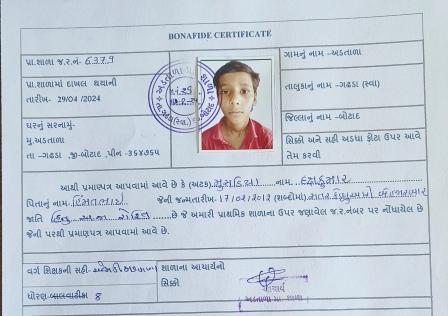 BONAFIDE CERTIFICATE
પ્રા.શાળા જ.ર.નં- 6379
ગામનું નામ -અડતાળા
પ્રા.શાળામાં દાખલ થયાની
તારીખ- 29/04/2024
તાલુકાનું નામ -ગઢડા (સ્વા)
જિલ્લાનું નામ -બોટાદ
ઘરનું સરનામું-
મુ.અડતાળા
તા -ગઢડા જી-બોટાદ ,પીન -૩૬૪૭૬૫
સિક્કો અને સહી અડધા ફોટા ઉપર આવે
તેમ કરવી
આથી પ્રમાણપત્ર આપવામાં આવે છે કે (અટક) નામ
પિતાનું નામ હિંમતભાઇ જેની જન્મતારીખ-17/02/2012 (શબ્દોમાં)
જાતિ હિન્દુ છે જે અમારી પ્રાથમિક શાળાના ઉપર જણાવેલ જ.ર.નંબર પર નોંધાયેલ છે
જેની પરથી પ્રમાણપત્ર આપવામાં આવે છે.
વર્ગ શિક્ષકની સહી- શાળાના આચાર્યનો
સિક્કો
ધોરણ-બાલવાટીકા 8
આચાર્ય
અડતાળા પ્રા. શાળા